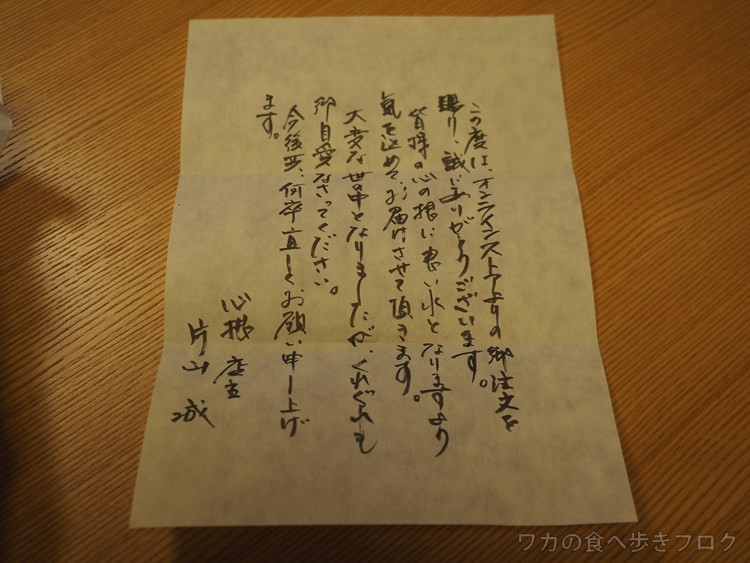 この度は、オンラインストアよりの御注文を
賜り、誠にありがとうございます。
皆様の心の根に良い水となりますより
気を込めて、お届けさせて頂きます。
大変な世の中となりましたが、くれぐれも
御自愛なさってください。
今後共、何卒宜しくお願い申し上げ
ます。
心根 店主
片山 城
ワカの食べ歩きブログ